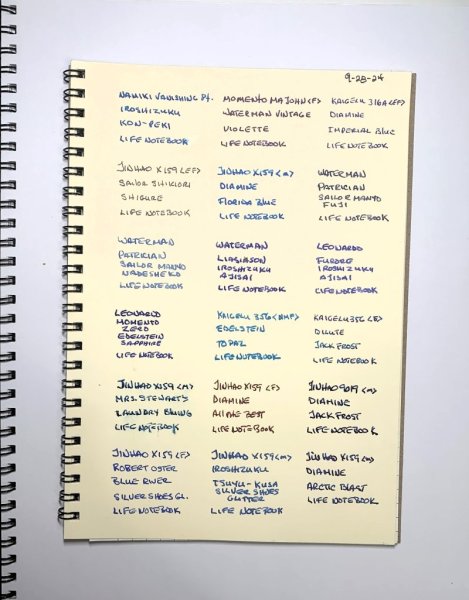 9-28-24
NAMIKI VANISHING Pt.
IROSHIZUKU
KON-PEKI
LIFE NOTEBOOK
MOMENTO MAJOHN <F>
WATERMAN VINTAGE
VIOLETTE
LIFE NOTEBOOK
KAIGELU 316A <EF>
DIAMINE
IMPERIAL BLUE
LIFE NOTEBOOK
JINHAO X159 <EF>
SAILOR SHIKIORI
SHIGURE
LIFE NOTEBOOK
JINHAO X159 <M>
DIAMINE
FLORIDA BLUE
LIFE NOTEBOOK
WATERMAN
PATRICIAN
SAILOR MANYO
FUJI
LIFE NOTEBOOK
WATERMAN
PATRICIAN
SAILOR MANYO
NADESHEKO
LIFE NOTEBOOK
WATERMAN
LIASIASON
IROSHIZUKU
AJISAI
LIFE NOTEBOOK
LEONARDO
FURORE
IROSHIZUKU
AJISAI
LIFE NOTEBOOK
LEONARDO
MOMENTO
ZERO
EDELSTEIN
SAPPHIRE
LIFE NOTEBOOK
KAIGELU 356 <MMF>
EDELSTEIN
TOPAZ
LIFE NOTEBOOK
KAIGELU 356 <F>
DILUTE
JACK FROST
LIFE NOTEBOOK
JINHAO X159 <M>
MRS. STEWART'S
LAUNDRY BLUING
LIFE NOTEBOOK
JINHAO X159 <F>
DIAMINE
All the BEST
LIFE NOTEBOOK
JINHAO 9019 <M>
DIAMINE
JACK FROST
LIFE NOTEBOOK
JINHAO X159 <F>
ROBERT OSTER
BLUE RIVER
SILVER SHOES GL.
LIFE NOTEBOOK
JINHAO X159 <M>
IROSHIZUKU
TSUYU-KUSA
SILVER SHOES
GLITTER
LIFE NOTEBOOK
JINHAO X159 <M>
DIAMINE
ARCTIC BLAST
LIFE NOTEBOOK